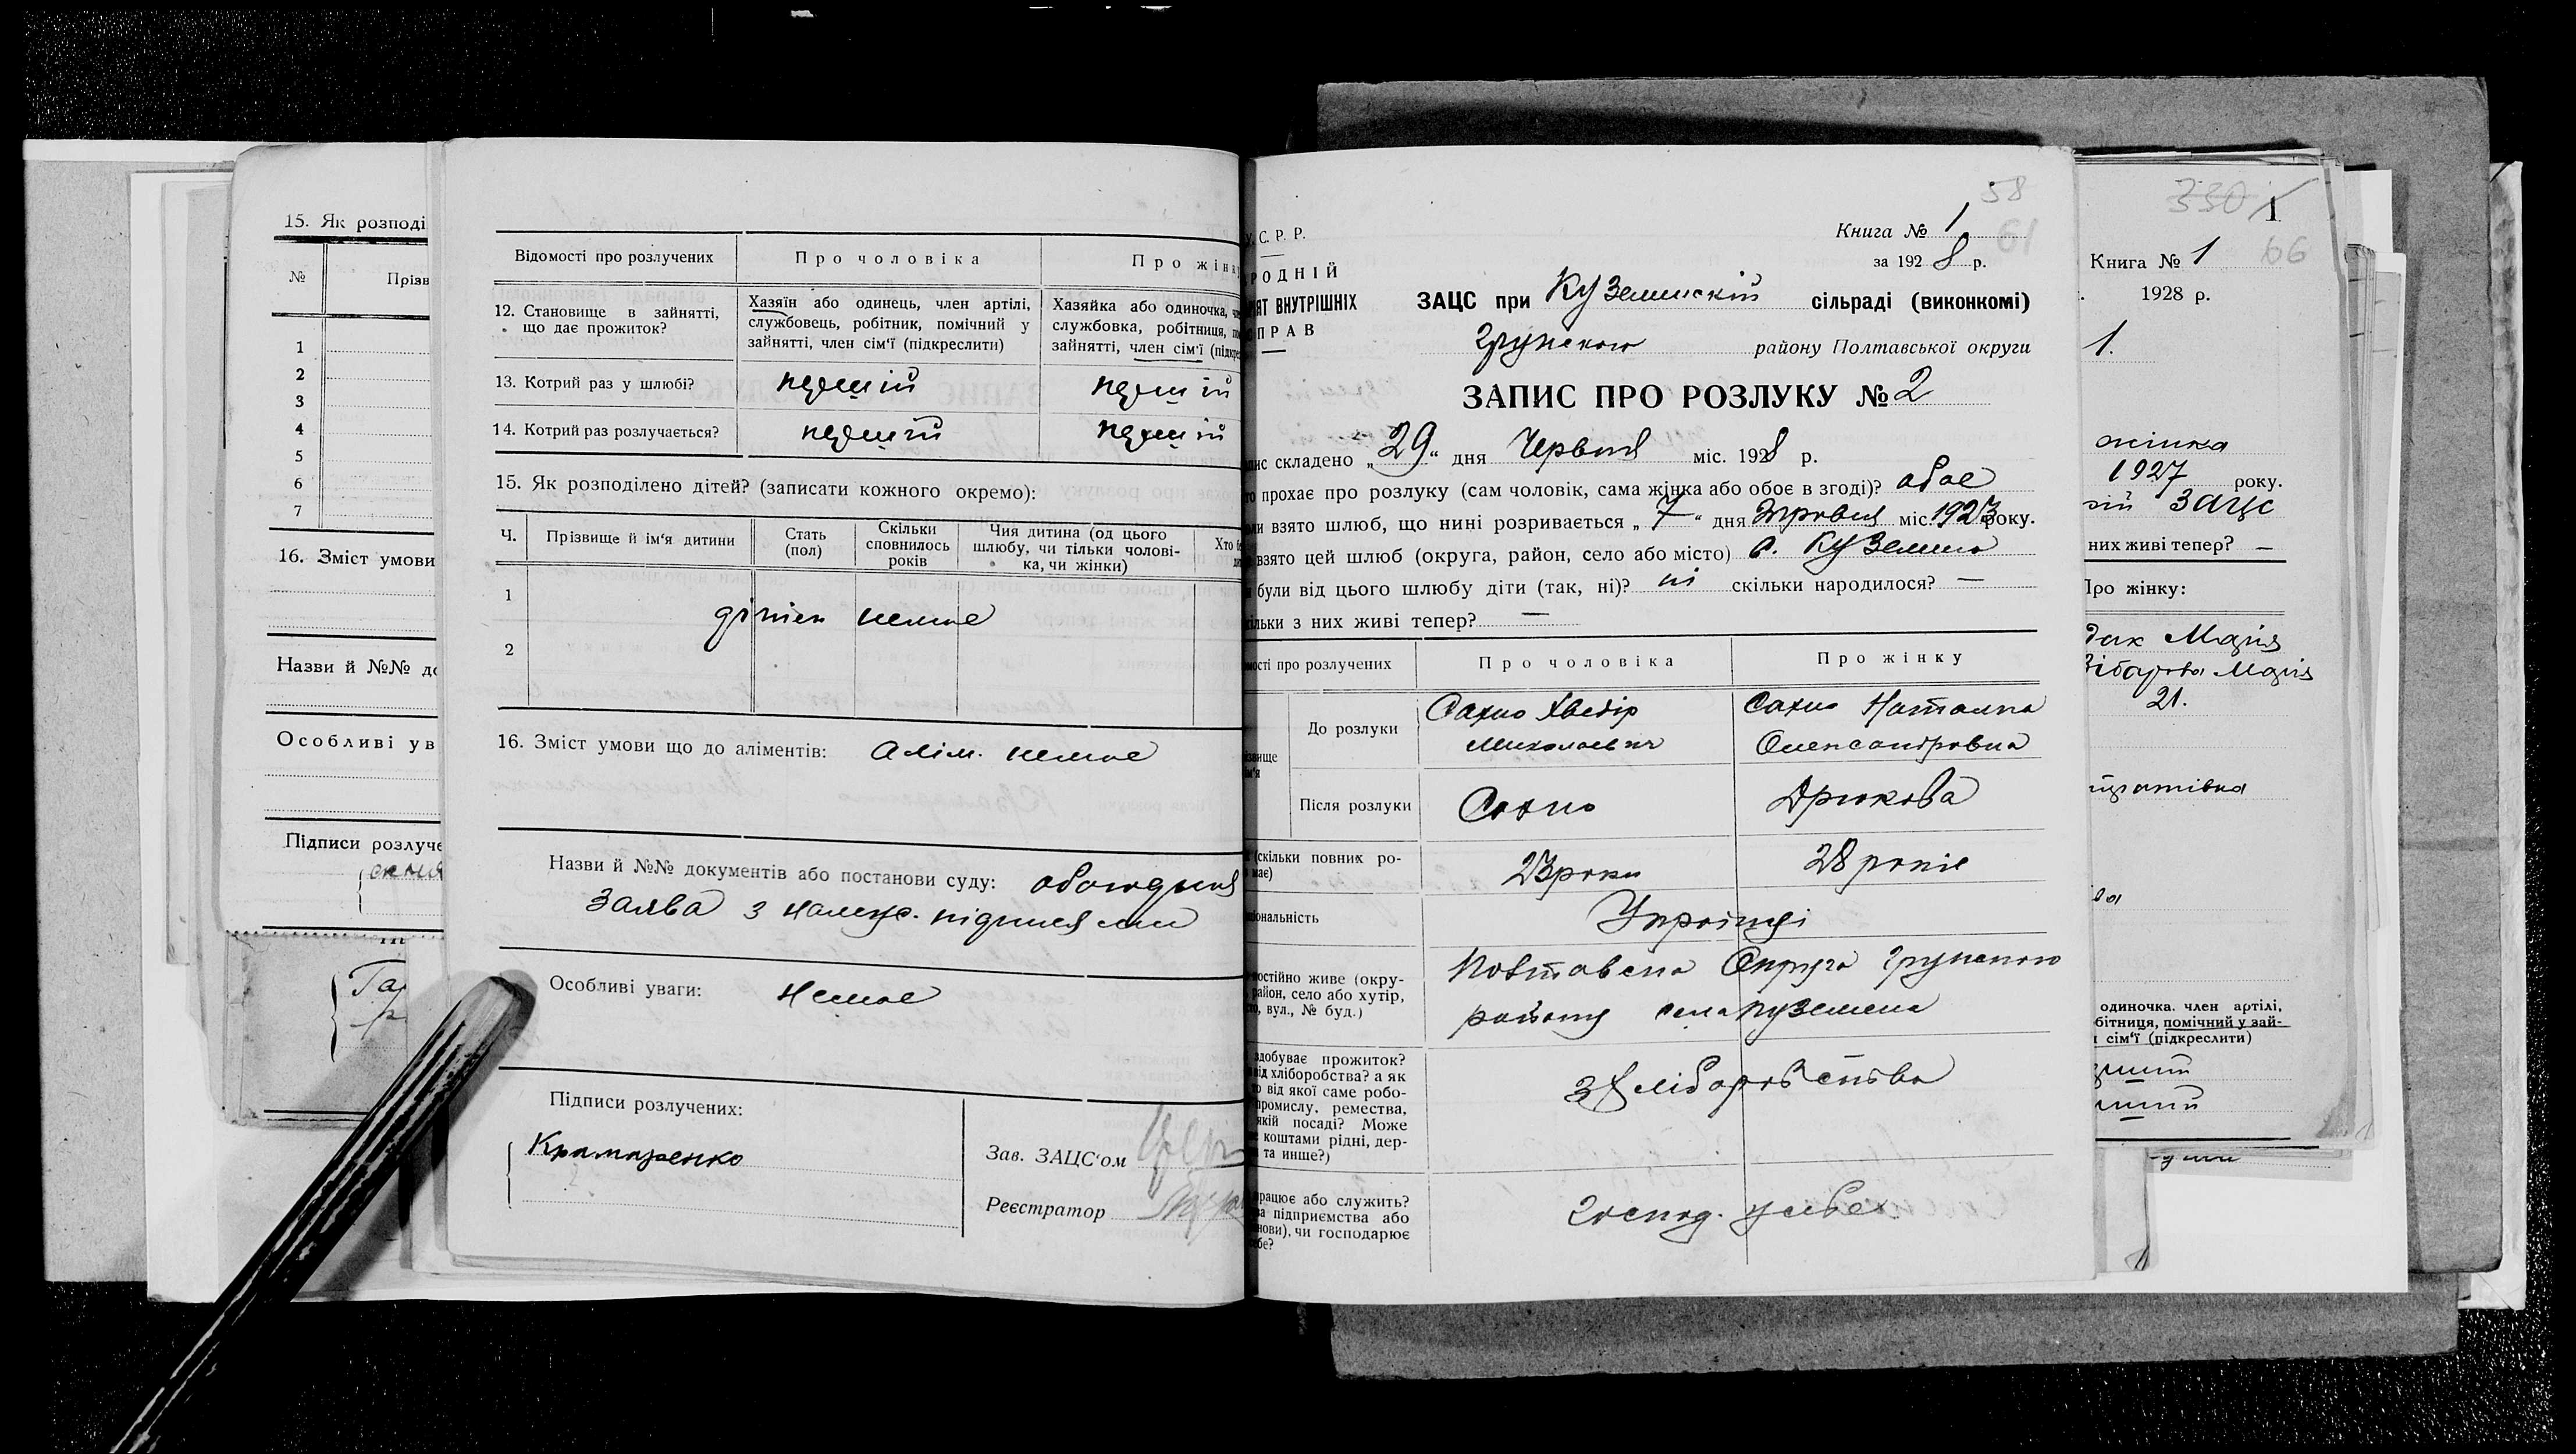 15. Як розподі
№ Прізв
1
2
3
4
5
6
7
16. Зміст умови
Назви й №№ до
Особливі ув
Підписи розлуче
Відомості про розлучених
Про чоловіка
Про жінк
12. Становище в зайнятті, що дає прожиток?
Хазяїн або одинець, член артілі,
службовець, робітник, помічний у
зайнятті, член сім'ї (підкреслити)
Хазяйка або одиночка, чл
службовка, робітниця, по
зайнятті, член сім'ї (підкре
13. Котрий раз у шлюбі? перший перший
14. Котрий раз розлучається? перший перший
15. Як розподілено дітей? (записати кожного окремо):
Ч. Прізвище й ім'я дитини
Стать (пол)
Скільки сповнилось років
Чия дитина (од цього
шлюбу, чи тільки чолові-
ка, чи жінки)
1
дітей немає
2
16. Зміст умови що до аліментів: Алім. немає
Назви й №№ документів або постанови суду: обоюдная
заява з належ. підписями
Особливі уваги: Немає
Підписи розлучених:
Крамаренко
Зав. ЗАЦС'ом
Реєстратор
58
61
У.С.Р.Р.
РОДНІЙ
ІЯТ ВНУТРІШНІХ
ПРАВ
Книга № 1
за 1928 р.
ЗАЦС при Куземинскій сільраді (виконкомі)
Грунского району Полтавської округи
ЗАПИС ПРО РОЗЛУКУ № 2
пис складено „29" дня Червня міс. 1928 р.
то прохає про розлуку (сам чоловік, сама жінка або обоє в згоді)? обоє
ли взято шлюб, що нині розривається „7" дня міс. 1923 року.
взято цей шлюб (округа, район, село або місто) с. Куземино
були від цього шлюбу діти (так, ні)? ні скільки народилося? —
ільки з них живі тепер? —
мості про розлучених
Про чоловіка
Про жінку
ізвище
ім'я
До розлуки
Сахно Хведір
Миколаевич
Сахно Наталка
Олександровна
Після розлуки
Сахно
Дрюкова
(скільки повних ро-
має)
23 роки
28 років
ціональність
Українці
постійно живе (окру-
район, село або хутір,
о, вул., № буд.)
Полтавська Округа Грунского
району села Куземена
здобуває прожиток?
від хліборобства? а як
о від якої саме робо-
промислу, ремества,
якій посаді? Може
коштами рідні, дер-
та инше?)
З хліборобства
працює або служить?
ва підприємства або
нови), чи господарює
ебе?
господ. у себе
330
1
66
Книга № 1
1928 р.
1.
жінка
1927 року.
ЗАЦС
них живі тепер? —
Про жінку:
дак Марія
Марія
21.
одиночка, член артілі,
бітниця, помічний у зай-
сім'ї (підкреслити)